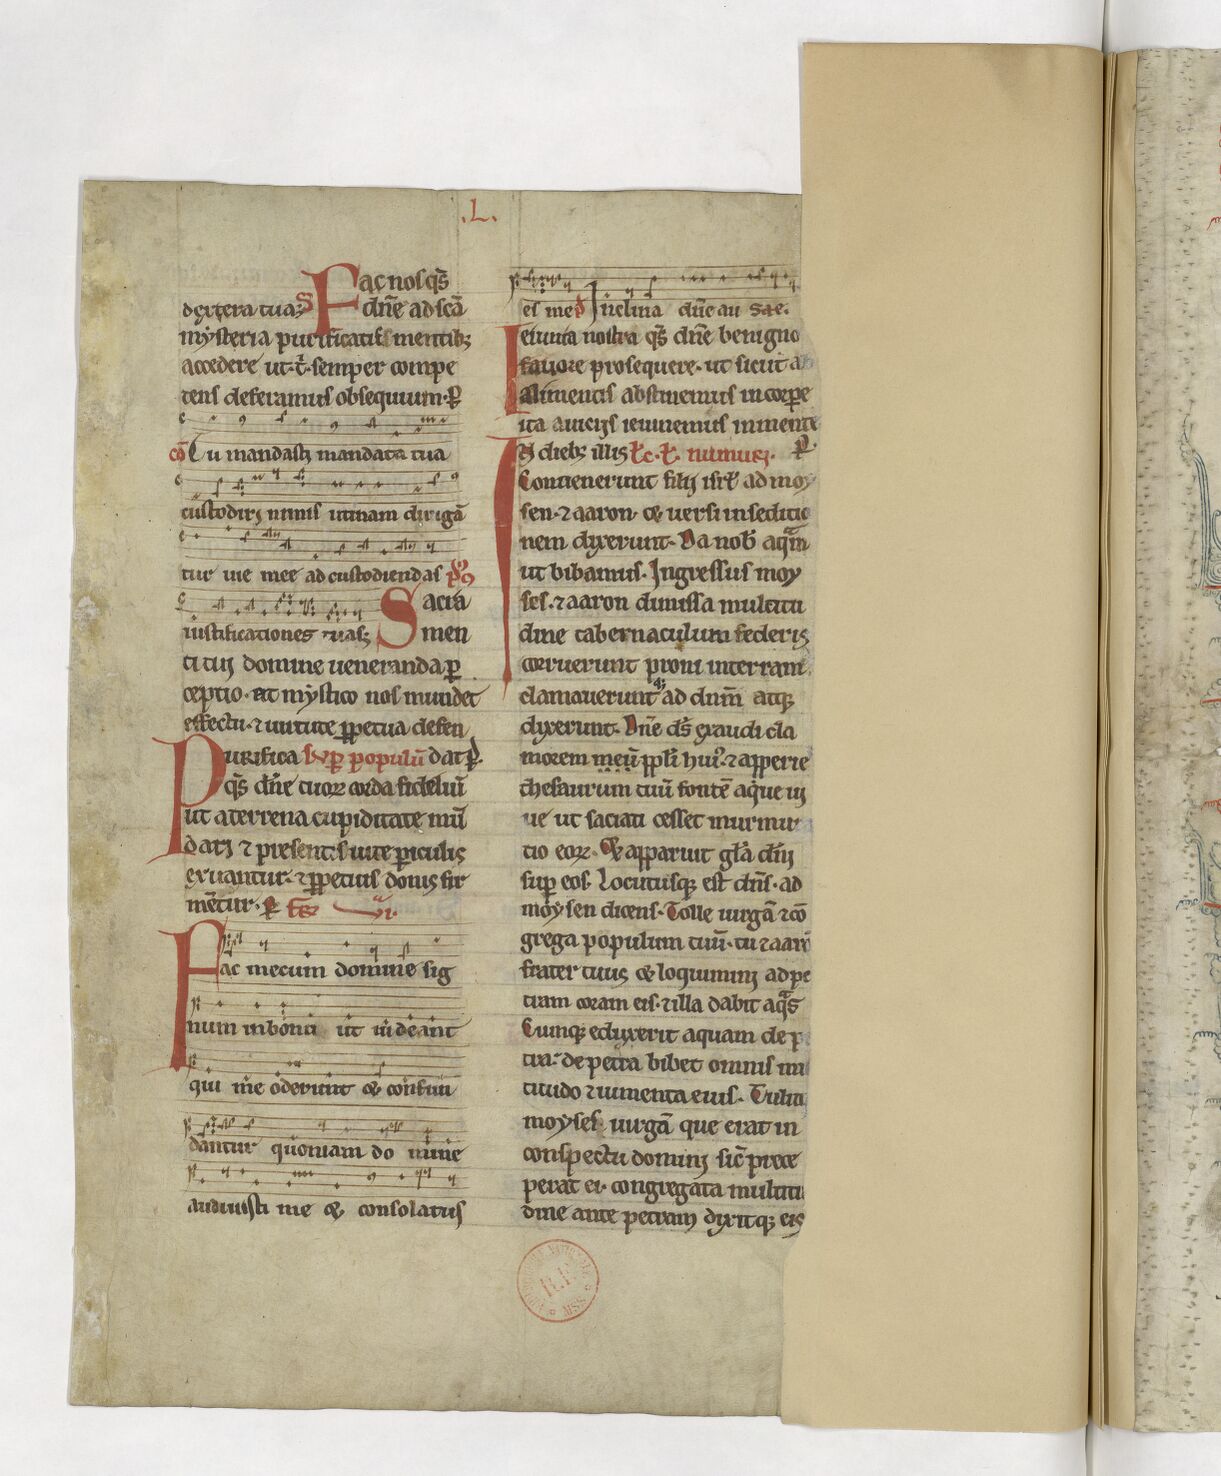 .L.
Fac nos qs̄
dextera tua. S dn̄e ad scā
mysteria purificatis mentib;
accedere ut t̄ semper compe
tens deferamus obsequium. ꝑ
cō Tu mandasti mandata tua
custodiri nimis utinam dirigā
tur uie mee ad custodiendas
iustificationes tuas. Sacra
men
ti tui domine ueneranda ꝑ
ceptio. et mystico nos mundet
effectu. ⁊ uirtute ꝑpetua defen
Purifica sup̄ populū dat ꝑ.
qs̄ dn̄e tuoꝝ corda fideliū
ut a terrena cupiditate mū
dati ⁊ presentis uite ꝑiculis
exuantur. ⁊ ꝑpetuis donis fir
mentur. ꝑ
Fac mecum domine sig
num in bono ut uideant
qui me oderunt et confun
dantur quoniam do mine
adiuuisti me et consolatus
es me. Inclina dn̄e au sae.
Ieiunia nostra qs̄ dn̄e benigno
fauore prosequere. ut sicut a
alimentis abstinemus in corpore
ita a uiciis ieiunemus in mente
In dieb; illis ꝑ
Conuenerunt filij isrl̄ ad moy
sen. ⁊ aaron. et uersi in seditio
nem dixerunt. Da nob̄ aquam
ut bibamus. Ingressus moy
ses. ⁊ aaron dimissa multitu
dine tabernaculum federis
corruerunt proni in terram.
clamauerunt ad dnm̄ atq;
dixerunt. Dn̄e ds̄ exaudi cla
morem meū ppl̄i hui'. ⁊ apperie
thesaurum tuū fontē aque ui
ue ut saciati cesset murmur
tio eoꝝ. Et apparuit gl̄a dn̄i
suꝑ eos. Locutusq; est dn̄s. ad
moysen dicens. Tolle uirgā ⁊ cō
grega populum tuū. tu ⁊ aarō
frater tuus et loquimini ad pe
tram coram eis. ⁊ illa dabit aq̄s
Cumq; eduxerit aquam de p
tra. de petra bibet omnis mu
titudo ⁊ iumenta eius. Tulit
moyses uirgā que erat in
conspectu domini sic̄ prece
perat ei. congregata multitu
dine ante petram dixitq; eis